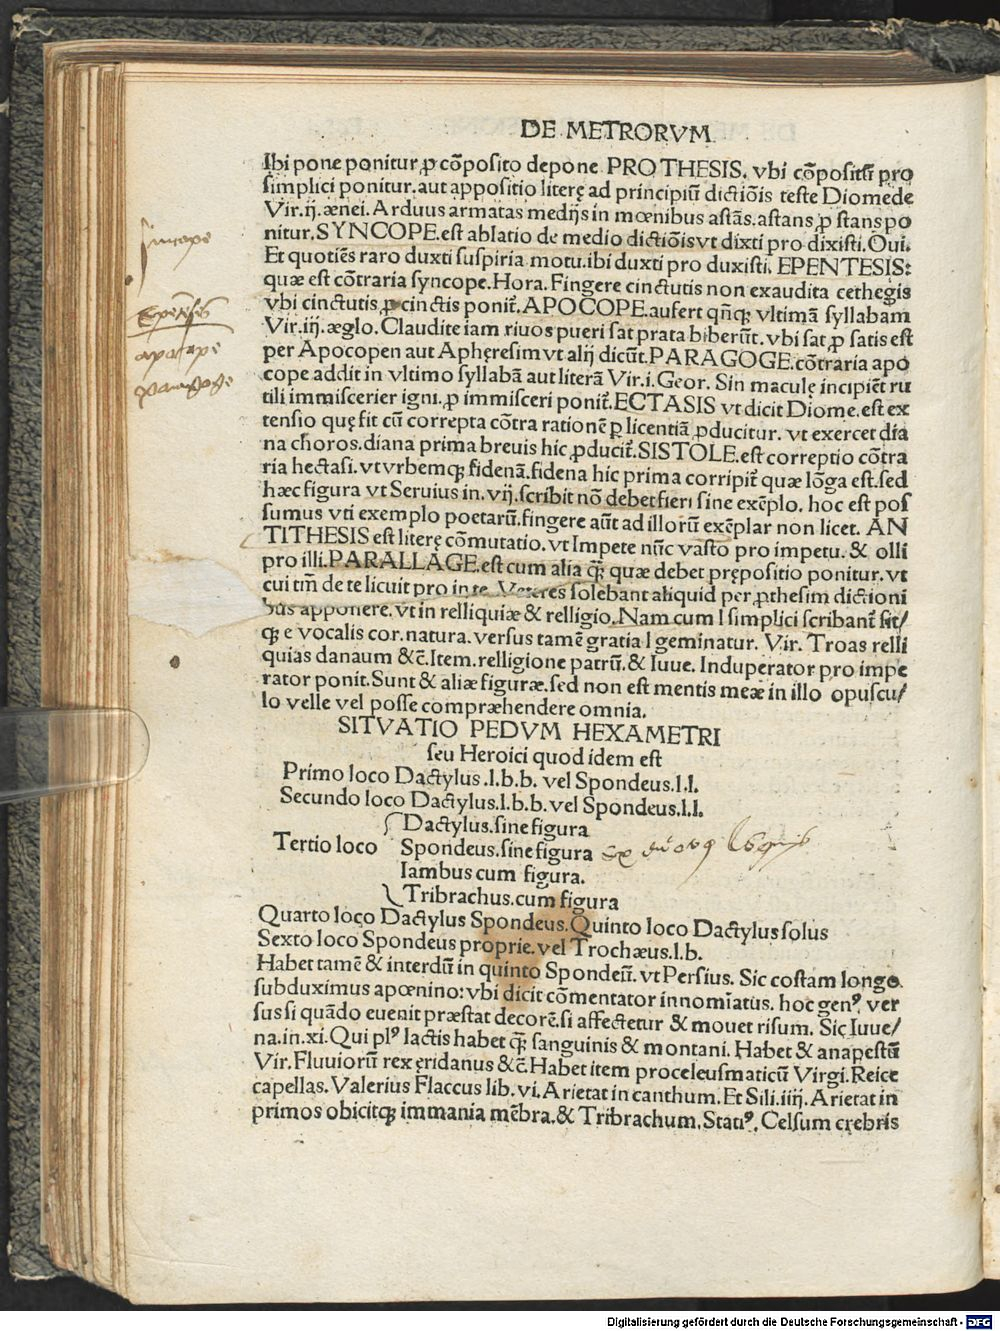 DE METRORVM
Ibi pone ponitur ꝓ cõposito depone PROTHESIS. vbi cõpositũ pro
simplici ponitur. aut appositio literę ad principiũ dictiõis teste Diomede
Vir. ij. ænei. Arduus armatas medijs in mœnibus astãs. astans ꝓ stans po
nitur. SYNCOPE. est ablatio de medio dictiõis vt dixti pro dixisti. Oui.
Et quotiẽs raro duxti suspiria motu. ibi duxti pro duxisti. EPENTESIS:
quæ est cõtraria syncope. Hora. Fingere cinctutis non exaudita cethegis
vbi cinctutis ꝓ cinctis ponit̃. APOCOPE. aufert qñꝗ vltimã syllabam
Vir. iij. æglo. Claudite iam riuos pueri sat prata biberũt. vbi sat ꝓ satis est
per Apocopen aut Apheresim vt alij dicũt. PARAGOGE. cõtraria apo
cope addit in vltimo syllabã aut literã Vir. i. Geor. Sin maculę incipiẽt ru
tili immiscerier igni. ꝓ immisceri ponit̃. ECTASIS vt dicit Diome. est ex
tensio quę fit cũ correpta cõtra rationẽ ꝑ licentiã ꝓducitur. vt exercet dia
na choros. diana prima breuis hic ꝓducit̃. SISTOLE. est correptio cõtra
ria hectasi. vt vrbemꝗ fidenã. fidena hic prima corripit̃ quæ lõga est. sed
hæc figura vt Seruius in. vij. scribit nõ debet fieri sine exẽplo. hoc est pos
sumus vti exemplo poetarũ. fingere aũt ad illorũ exẽplar non licet. AN
TITHESIS est literę cõmutatio. vt Impete nũc vasto pro impetu. & olli
pro illi. PARALLAGE. est cum alia ꝗ̃ quæ debet prępositio ponitur. vt
cui tm̃ de te licuit pro in te. Veteres solebant aliquid per ꝓthesim dictioni
bus apponere. vt in relliquiæ & relligio. Nam cum l simplici scribant̃ sit/
ꝗ e vocalis cor. natura. versus tamẽ gratia l geminatur. Vir. Troas relli
quias danaum &c̃. Item. relligione patrũ. & Iuue. Induperator pro impe
rator ponit. Sunt & aliæ figuræ. sed non est mentis meæ in illo opuscu/
lo velle vel posse compræhendere omnia.
SITVATIO PEDVM HEXAMETRI
seu Heroici quod idem est
Primo loco Dactylus .l.b.b. vel Spondeus.l.l.
Secundo loco Dactylus.l.b.b. vel Spondeus.l.l.
Dactylus. sine figura
Tertio loco Spondeus. sine figura
Iambus cum figura.
Tribrachus. cum figura
Quarto loco Dactylus Spondeus. Quinto loco Dactylus solus
Sexto loco Spondeus proprie. vel Trochæus.l.b.
Habet tamẽ & interdũ in quinto Spondeũ. vt Persius. Sic costam longo
subduximus apœnino: vbi dicit cõmentator innomiatus. hoc genꝰ ver
sus si quãdo euenit præstat decorẽ. si affectetur & mouet risum. Sic Iuue/
na. in. xi. Qui plꝰ lactis habet ꝗ̃ sanguinis & montani. Habet & anapestũ
Vir. Fluuiorũ rex ęridanus &c̃. Habet item proceleusmaticũ Virgi. Reice
capellas. Valerius Flaccus lib. vi. Arietat in canthum. Et Sili. iiij. Arietat in
primos obicitꝗ immania mẽbra. & Tribrachum. Statiꝰ. Celsum crebris
sincope
Epẽtesis
apocope
paragoge
Digitalisierung gefördert durch die Deutsche Forschungsgemeinschaft - DFG